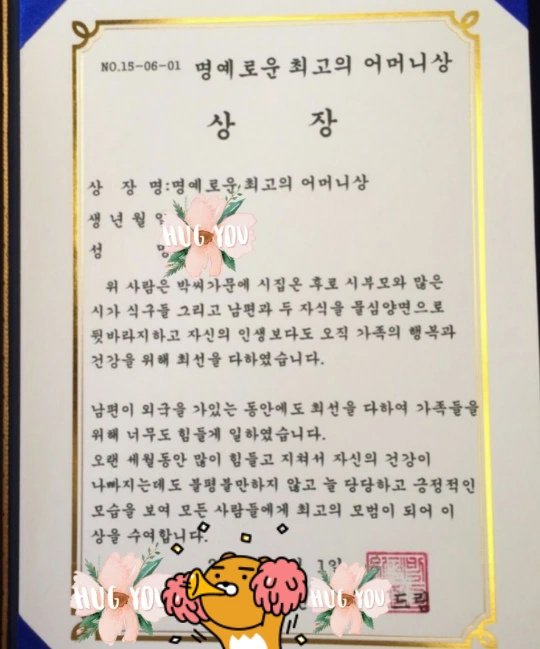 NO.15-06-01 명예로운 최고의 어머니상
상 장
상 장 명:명예로운 최고의 어머니상
생 년 월 일
성 명
HUG YOU
위 사람은 박씨가문에 시집온 후로 시부모와 많은
시가 식구들 그리고 남편과 두 자식을 물심양면으로
뒷바라지하고 자신의 인생보다도 오직 가족의 행복과
건강을 위해 최선을 다하였습니다.
남편이 외국을 가있는 동안에도 최선을 다하여 가족들을
위해 너무도 힘들게 일하였습니다.
오랜 세월동안 많이 힘들고 지쳐서 자신의 건강이
나빠지는데도 불평불만하지 않고 늘 당당하고 긍정적인
모습을 보여 모든 사람들에게 최고의 모범이 되어 이
상을 수여합니다.
월 1일
HUG YOU
HUG YOU
드림